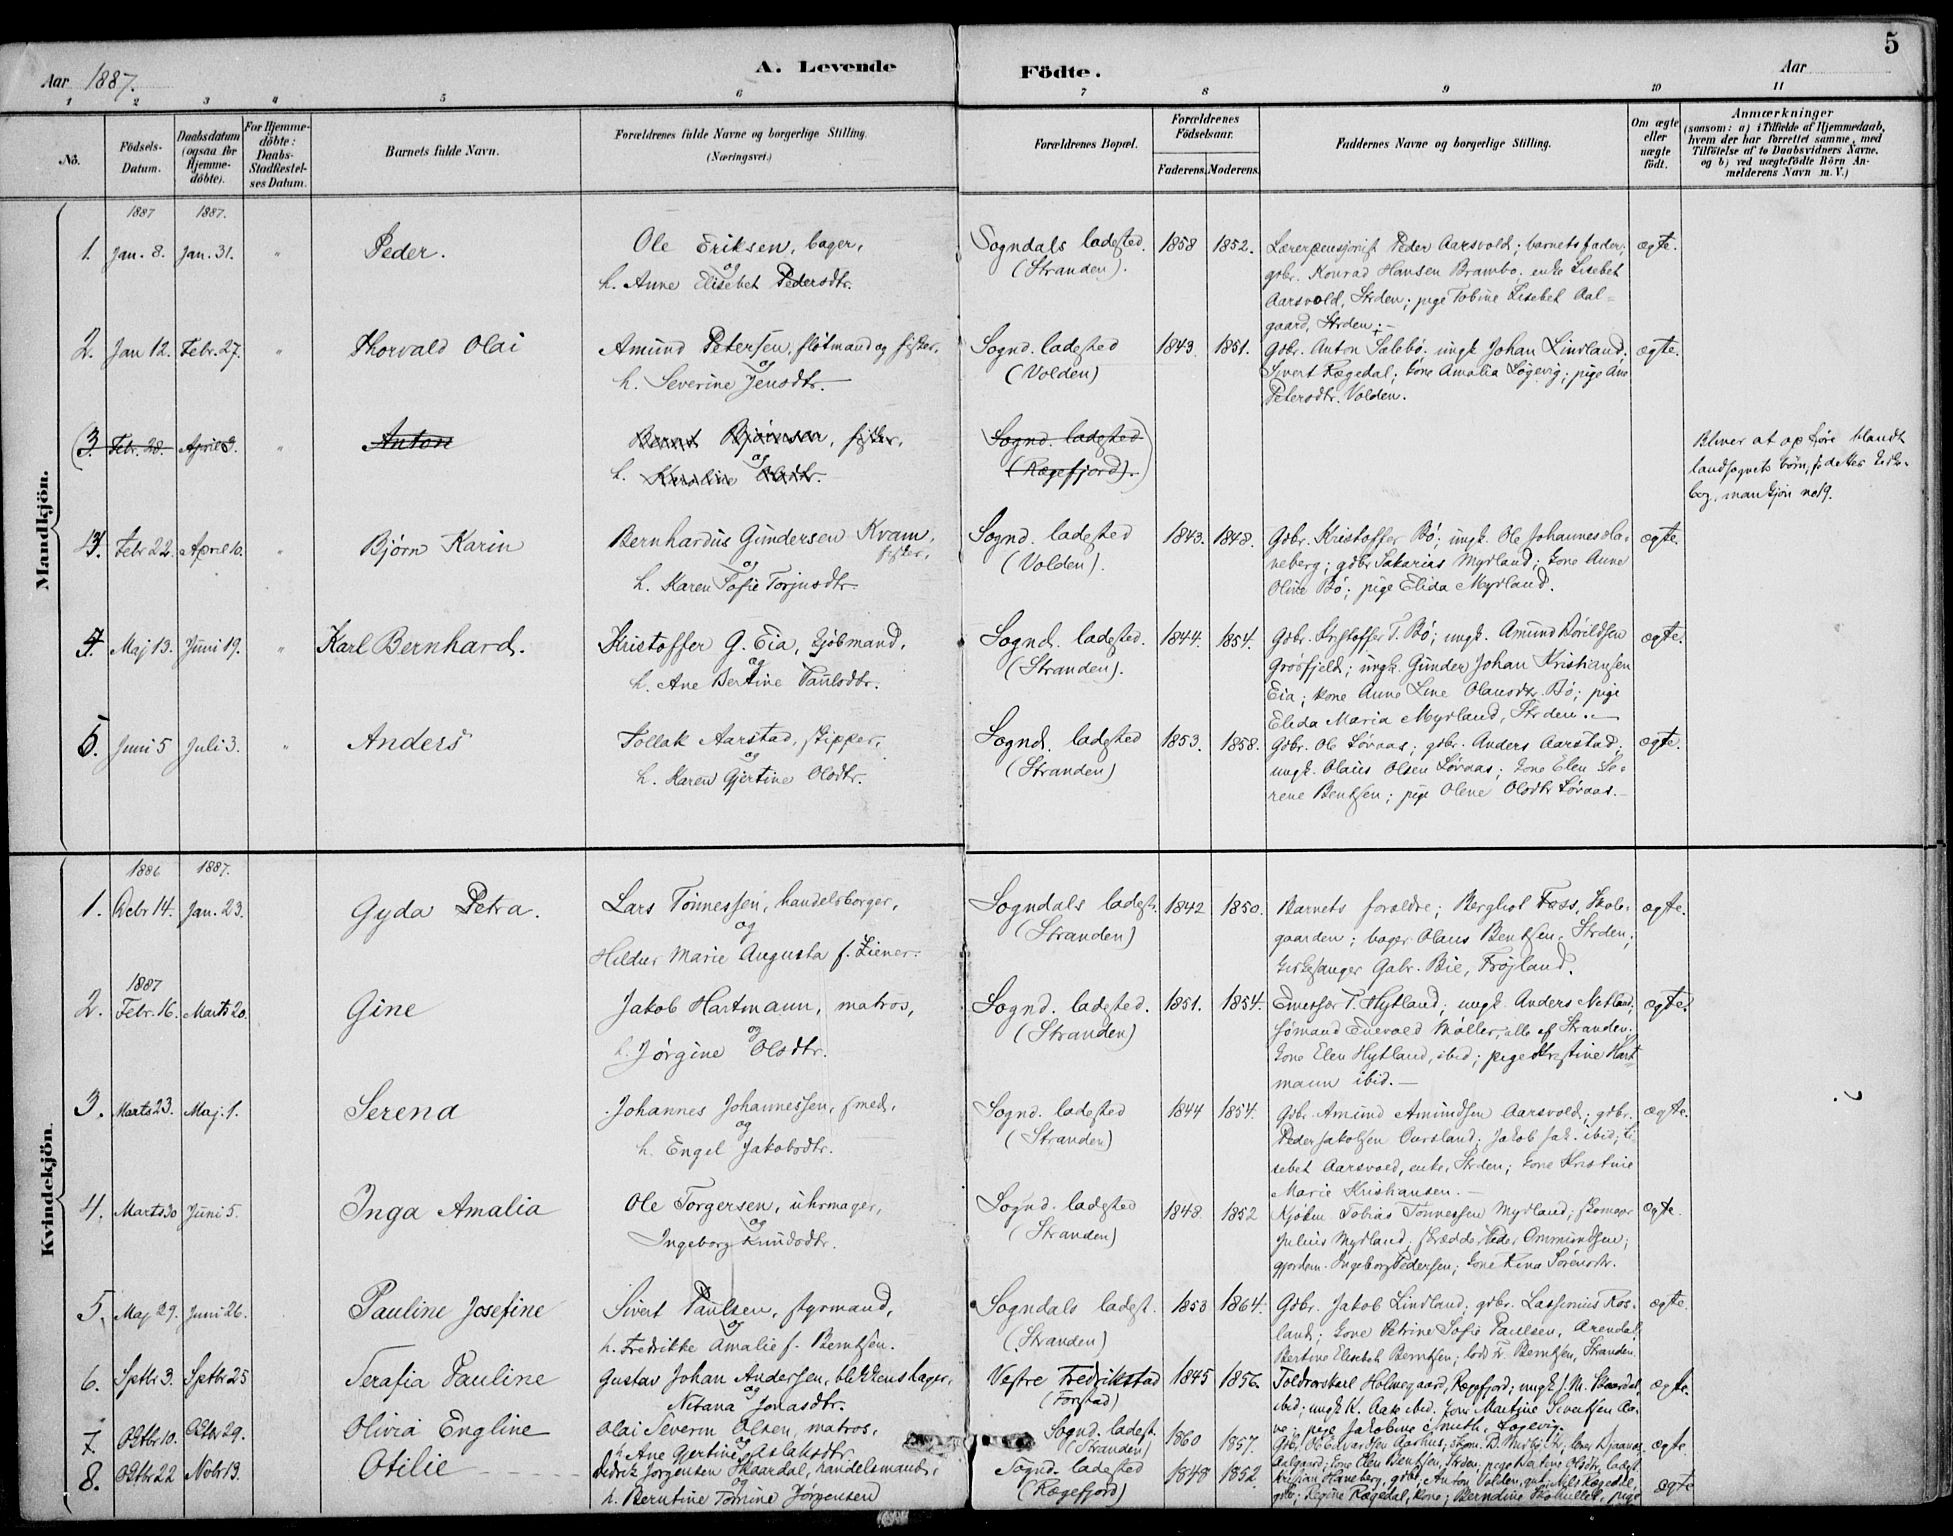 5
Aar 1887.
A. Levende Födte.
Aar
1 2 3 4 5 6 7 8 9 10 11
No.
Födsels-Datum.
Daabsdatum (ogsaa for Hjemme-döbte).
For Hjemme-döbte: Daabs-Stadfæstel-ses Datum.
Barnets fulde Navn.
Forældrenes fulde Navne og borgerlige Stilling.
(Næringsvei.)
Forældrenes Bopæl.
Forældrenes Födselsaar.
Faderens. Moderens.
Faddernes Navne og borgerlige Stilling.
Om ægte eller uægte födt.
Anmærkninger
(saasom: a) i Tilfælde af Hjemmedaab,
hvem der har forrettet samme, med
Tilföielse af to Daabsvidners Navne,
og b) ved uægtefödte Börn An-
melderens Navn m. V.)
Mandkjön.
1887 1887.
1. Jan. 8. Jan. 31. " Peder. Ole Eriksen, bager, Sogndals ladested. 1858 1852. Lærerpensjonist Peder Aarsvold; barnets fader; ægte.
og
h. Anne Elisebet Pedersdtr. (Stranden). gbr. Konrad Hansen Brambo. enke Lisebet
Aarsvold, Strden; pige Tobine Lisebet Aal-
gaard, Strden.
2. Jan 12. Febr. 27. " Thorvald Olai Amund Petersen, flötmand og fisker, Sogn. ladested 1843. 1851. Gbr. Anton Salebö. ungk. Johan Lindland. ægte.
og
h. Severine Jensdtr. (Volden) Sivert Rægedal; kone Amalia Løgevig; pige Ane
Petersdtr. Volden.
(3. Febr. 28. April 3. " Anton Bernt Bjørnsen, fisker, Sognd. ladested
og
h. Karoline Olsdtr. (Rægefjord).
Bliver at opføre blandt
landsognets börn,
bog, mankjön no 19.
3. Febr 22. April 10. " Bjørn Karin Bernhardus Gundersen Kvam, Sognd. ladested 1843. 1848. Gbr. Kristoffer Bö; ungk. Ole Johannes Ha- ægte.
fisker,
og
h. Karen Sofie Torjusdtr. (Volden). neberg; gbr Sakarias Myrland; kone Anne
Oline Bö; pige Elida Myrland.
4. Maj 13. Juni 19. " Karl Bernhard. Kristoffer G. Eia, kjöbmand, Sognd. ladested. 1844. 1854. Gbr. Kristoffer T. Bö; ungk. Amund ægte.
og
h. Ane Bertine Paulsdtr. (Stranden). Grösfjeld; ungk. Gunder Johan Kristiansen
Eia; kone Anne Line Olausdtr. Bö; pige
Elida Maria Myrland, Strden.
5. Juni 5 Juli 3. " Anders Tollak Aarstad, skipper, Sognd. ladested 1853. 1858. Gbr. Ole Løvaas; gbr. Anders Aarstad; ægte.
og
h. Karen Gjertine Olsdtr. (Stranden) ungk. Olaus Olsen Løvaas; kone Elen Se-
rene Bentsen; pige Olene Olsdtr Løvaas.
Kvindekjön.
1886 1887.
1. Debr 14. Jan. 23. Gyda Petra. Lars Tönnessen, handelsborger, Sogndals ladest. 1842 1850. Barnets forældre; Bergliot Foss, Skole- ægte.
og
Hildur Marie Augusta f. Ziener. (Stranden) gaarden; bager Olaus Bentsen, Strden;
kirkesanger Gabr. Bie, Frøjland.
1887
2. Febr. 16. Marts 20. Gine Jakob Hartmann, matros, Sognd. ladested. 1851. 1854. T. Hytland; ungk. Anders Netland; ægte.
og
h. Jørgine Olsdtr. (Stranden) sömand Enevold Møller, alle af Stranden;
kone Elen Hytland, ibid; pige Kristine Hart
mann ibid.
3. Marts 23. Maj. 1. Serena Johannes Johannessen, smed, Sognd. ladested 1844 1854. Gbr. Amund Amundsen Aarsvold; gbr. ægte.
og
h. Engel Jakobsdtr. (Stranden) Peder Jakobsen Oursland; Jakob Jak. ibid; Li
sebet Aarsvold, enke, Strden; kone Kristine
Marie Kristiansen.
4. Marts 30 Juni 5. Inga Amalia Ole Torgersen, uhrmager, Sognd. ladested 1848. 1852 Kjöbm. Tobias Tønnessen Myrland; skomager ægte.
og
Ingeborg Knudsdtr. (Stranden) Julius Myrland; skrædder Peder Ommundsen;
gjordem. Ingeborg Pedersen; kone Kina Sørensdtr.
5. Maj 29. Juni 26. Pauline Josefine Sivert Paulsen, styrmand, Sogndals ladest. 1853 1864. Gbr. Jakob Lindland; gbr. Lassenius Ros- ægte.
og
h. Fredrikke Amalie f. Berntsen. (Stranden) land; kone Petrine Sofie Paulsen, Arendal;
Bertine Elisebet Berntsen; Berntsen, Stranden.
6. Septbr 3. Septbr 25 Serafia Pauline Gustav Johan Andersen, blikkenslager, Vestre Fredrikstad 1845 1856. Toldrorskarl Holmegaard, Rægefjord; ungk. J. M. Skaardal, ægte.
og
Nitana Jonasdtr. (Forstad) ibid; ungk. K. Aase ibid. kone Martine Sivertsen
pige Jakobine Smith. Løgevig.
7. Oktbr 10. Oktbr 29. Olivia Engline Olai Severin Olsen, matros, Sognd. ladest. 1860 1857. Gbr. Ole Edvardsen Aarhus; ægte
og
h. Ane Gertine Aslaksdtr. (Stranden) Aalgaard; kone Elen Bentsen, Strden; pige Bertine Olsdtr, ladest
8. Oktbr 22 Novbr 13. Otilie Didrik Jørgensen Skaardal, handelsmand, Sognd. ladested 1848 1852. Kristian Haneberg, gbr; Anton Volden, Nils Rægedal, ægte
og
h. Berntine Tomine Jørgensen (Rægefjord) gbr; Regine Rægedal, kone; Berndine pige